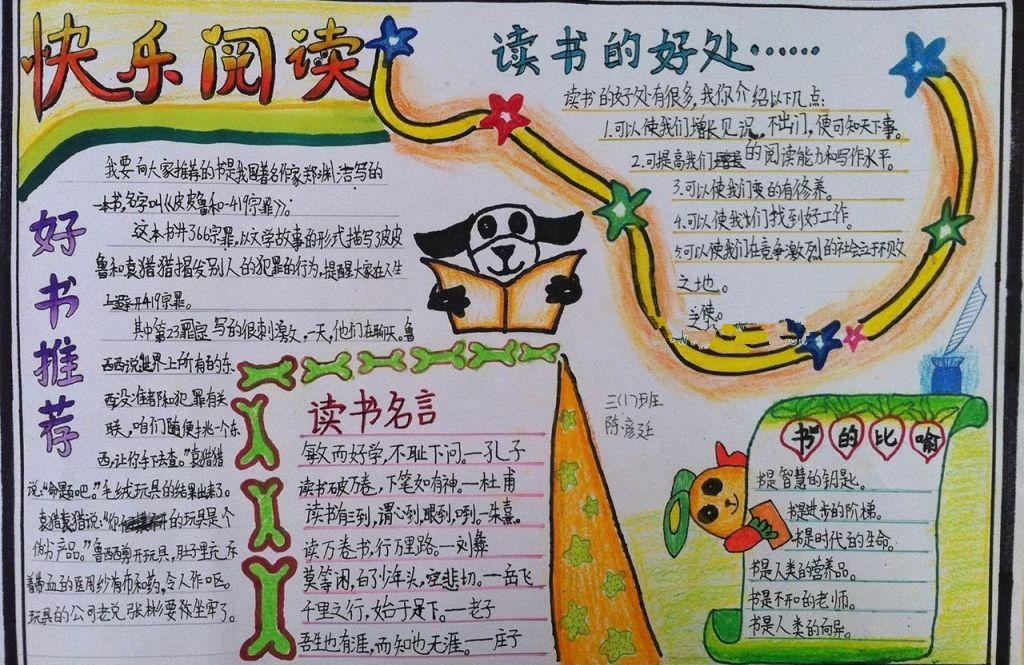 快乐阅读
读书的好处······
读书的好处有很多,我你介绍以下几点:
1.可以使我们增长见识,不出门,便可知天下事。
2.可提高我们的阅读能力和写作水平。
3.可以使我们变的有修养。
4.可以使我们找到好工作。
5.可以使我们在竞争激烈的社会立于不败
之地。
好书推荐
我要向大家推荐的书是我国著名作家郑渊洁写的
一本书,名字叫《皮皮鲁和419宗罪》。
这本书共366宗罪,以文学故事的形式描写皮皮
鲁和袁猎猎揭发别人的犯罪的行为,提醒大家在人生
上避开419宗罪。
其中第23罪宗写的很刺激,一天,他们在聊天。鲁
西西说世界上所有的东
西没准都和犯罪有关
联,咱们随便挑一个东
西,让你手下去查。”袁猎猎
说:“命题吧。”毛绒玩具的结果出来了。
袁猎猎说:“你的玩具是个
伪劣产品。”鲁西西剪开玩具,肚子里充
带血的医用纱布和药,令人作呕。
玩具的公司老总张彬要
读书名言
敏而好学,不耻下问。—孔子
读书破万卷,下笔如有神。—杜甫
读书有三到,谓心到,眼到,口到。—朱熹。
读万卷书,行万里路。—刘彝
莫等闲,白了少年头,空悲切。—岳飞
千里之行,始于足下。—老子
吾生也有涯,而知也无涯。——庄子
三(1)班
陈彦廷
书的比喻
书是智慧的钥匙。
书是进步的阶梯。
书是时代的生命。
书是人类的营养品。
书是不和的老师。
书是人类的